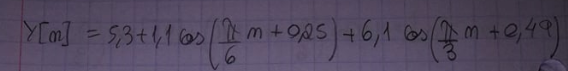 Y[m] = 5,3+1,1 cos(π/6 m + 0,25) + 6,1 cos(π/3 m + 0,49)